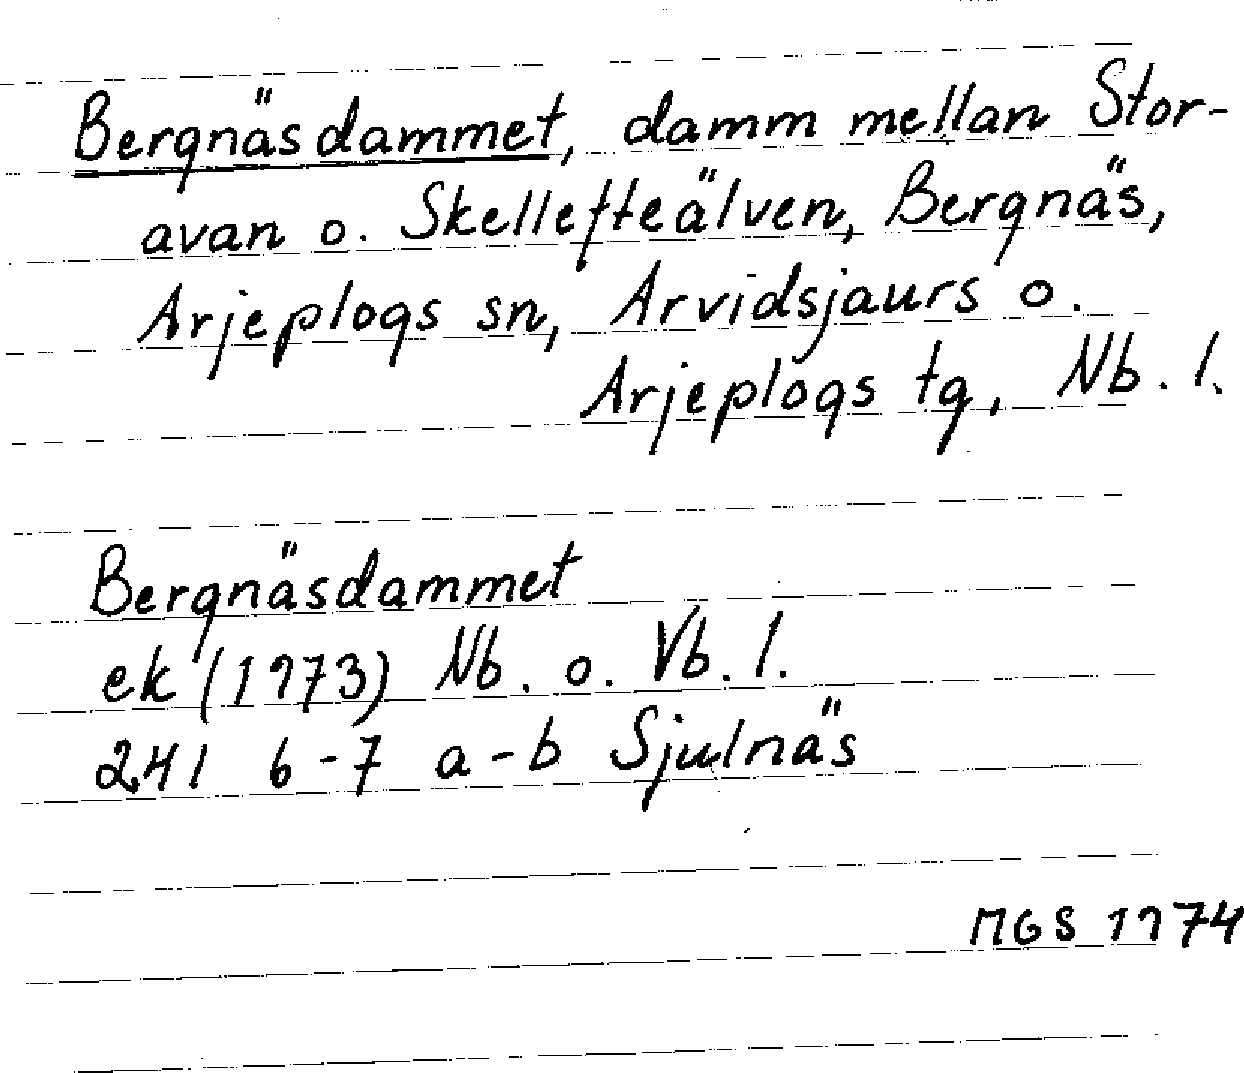 Bergnäsdammet, damm mellan Stor-
avan o. Skellefteälven, Bergnäs,
Arjeplogs sn, Arvidsjaurs o.
Arjeplogs tg, Nb. l.
Bergnäsdammet
ek (1973) Nb. o. Vb. l.
24I 6-7 a-b Sjulnäs
MGS 1974